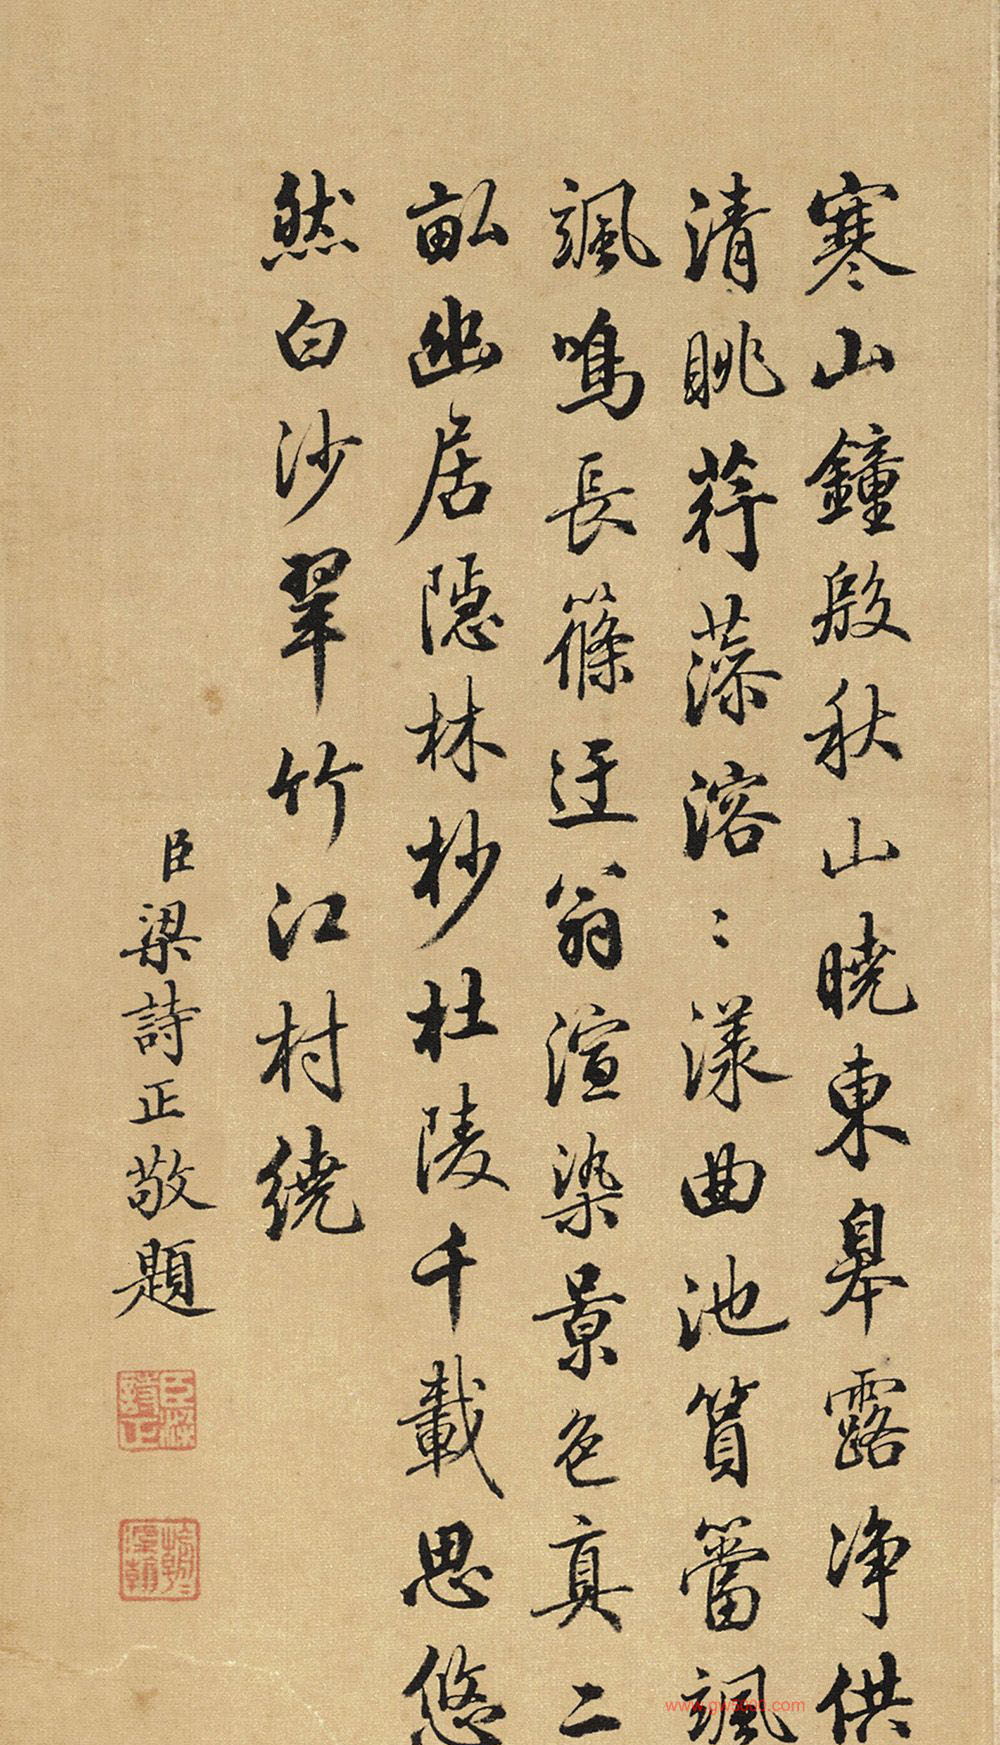 寒山鐘殷秋山曉東皋露淨供
清眺荇藻溶〻漾曲池篔簹颯
颯鳴長篠迂翁渲染景色真二
畝幽居隱林杪杜陵千載思悠
然白沙翠竹江村繞
臣梁詩正敬題
臣梁詩正